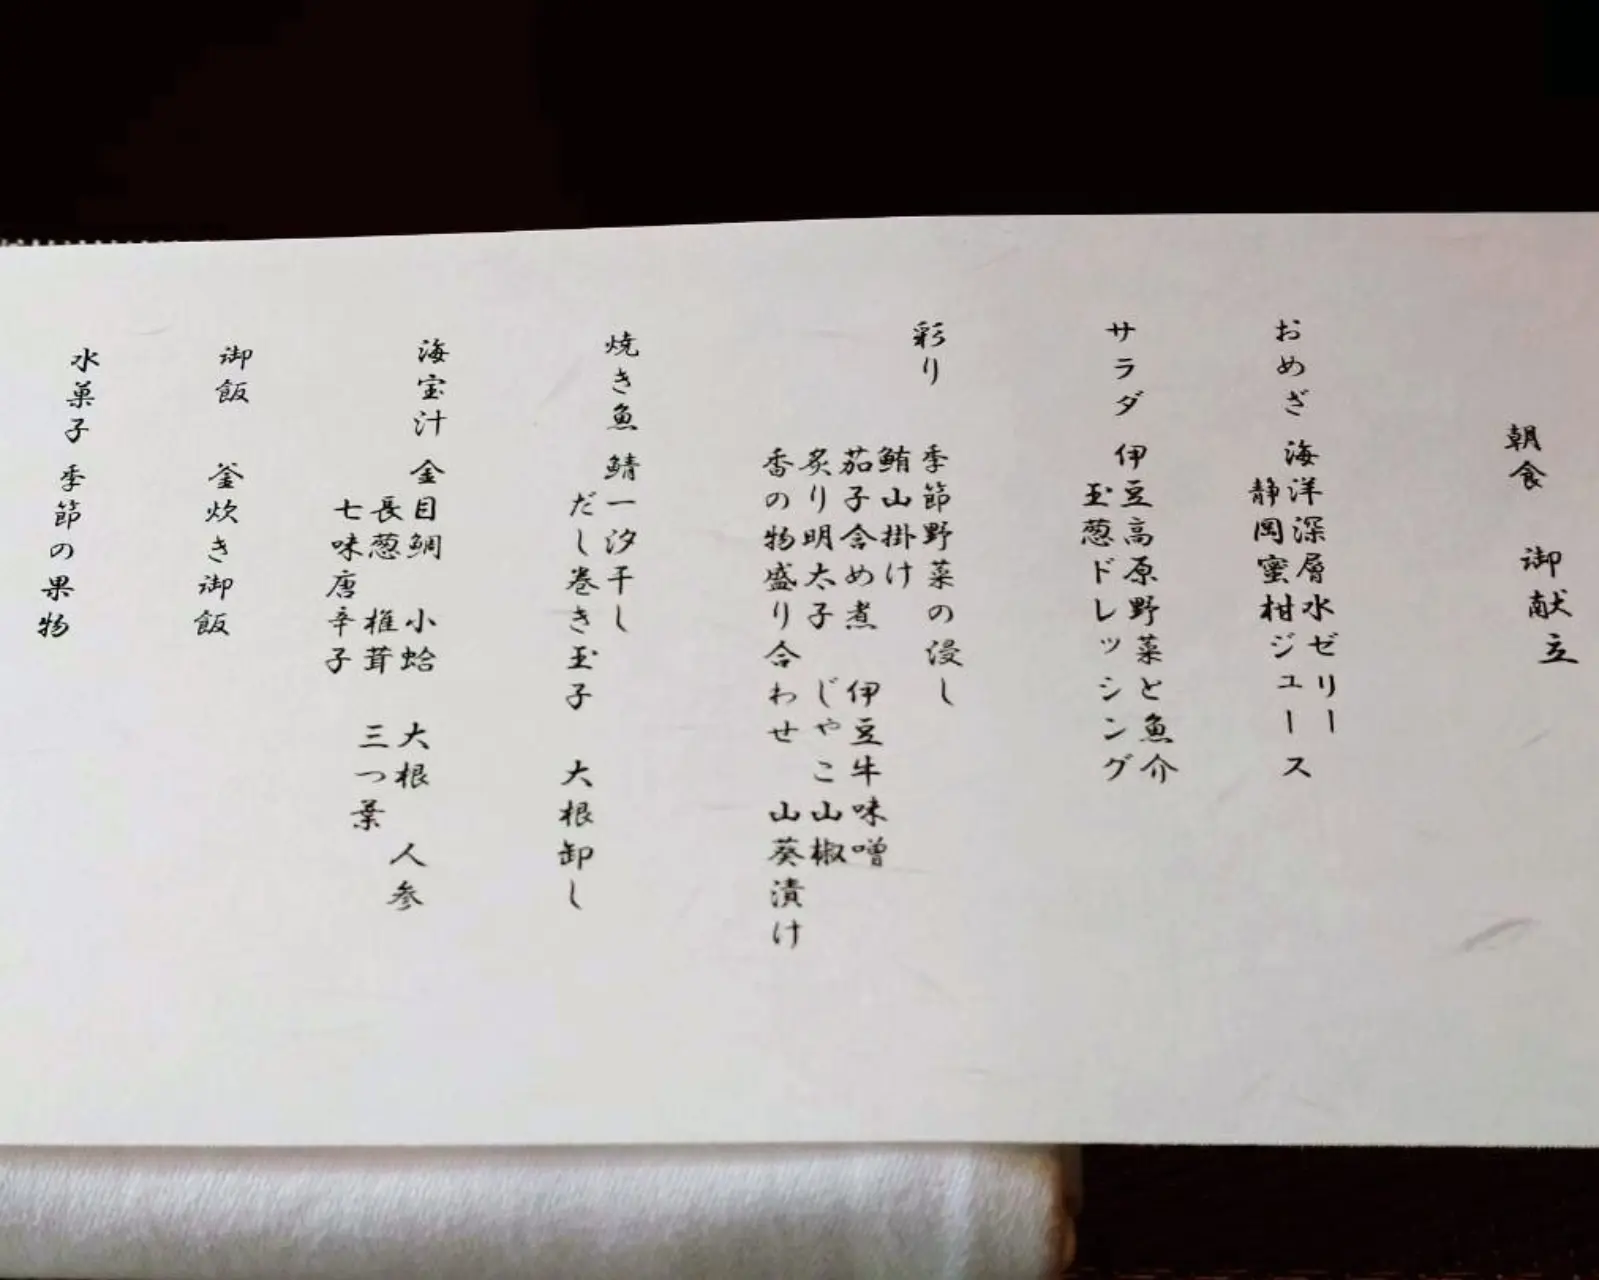 朝食 御献立
おめざ 海洋深層水ゼリー
静岡蜜柑ジュース
サラダ 伊豆高原野菜と魚介
玉葱ドレッシング
彩り 季節野菜の浸し
鮪山掛け
茄子含め煮 伊豆牛味噌
炙り明太子 じゃこ山椒
香の物盛り合わせ 山葵漬け
焼き魚 鯖一汐干し
だし巻き玉子 大根卸し
海宝汁 金目鯛 小蛤 大根 人参
長葱 椎茸 三つ葉
七味唐辛子
御飯 釜炊き御飯
水菓子 季節の果物